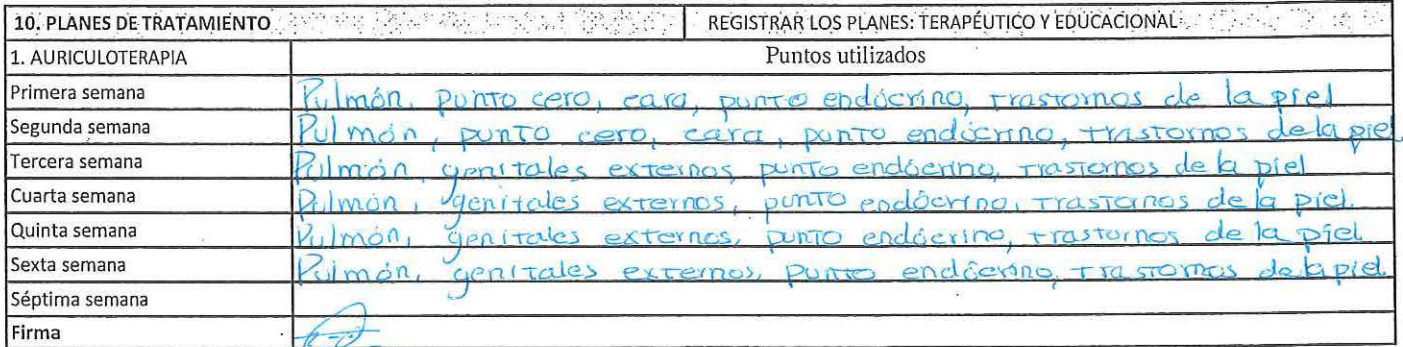 10. PLANES DE TRATAMIENTO REGISTRAR LOS PLANES: TERAPÉUTICO Y EDUCACIONAL
1. AURICULOTERAPIA Puntos utilizados
Primera semana Pulmón, punto cero, cara, punto endócrino, trastornos de la piel
Segunda semana Pulmón, punto cero, cara, punto endócrino, trastornos de la piel
Tercera semana Pulmón, genitales externos, punto endócrino, trastornos de la piel
Cuarta semana Pulmón, genitales externos, punto endócrino, trastornos de la piel.
Quinta semana Pulmón, genitales externos, punto endócrino, trastornos de la piel
Sexta semana Pulmón, genitales externos, punto endócrino, trastornos de la piel
Séptima semana
Firma